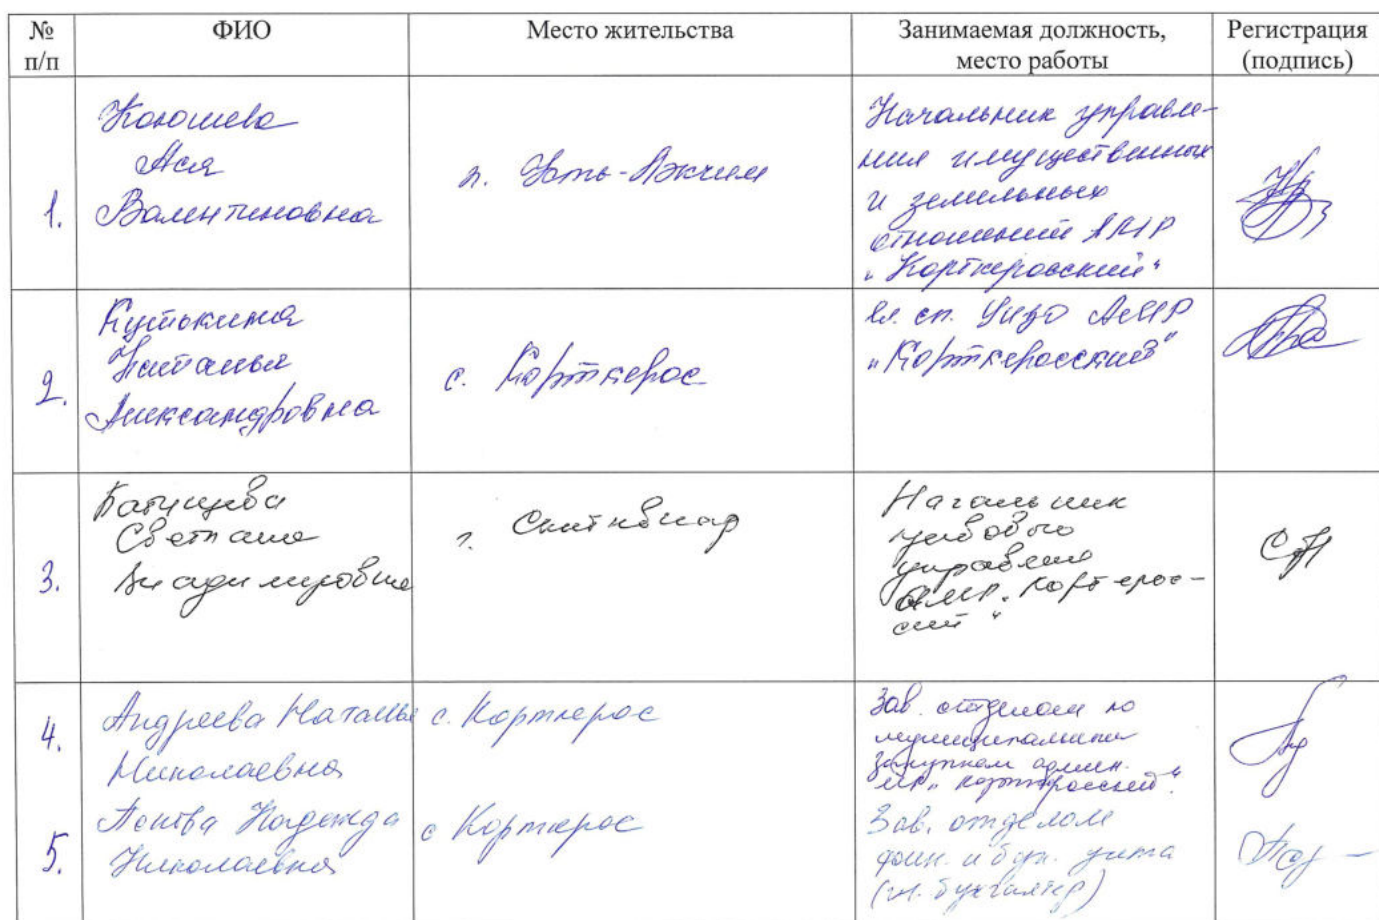 № п/п
ФИО
Место жительства
Занимаемая должность, место работы
Регистрация (подпись)
1.
Коюшева
Ася
Валентиновна
п. Усть-Лэкчим
Начальник управле-
ния имущественных
и земельных
отношений АМР
"Корткеросский"
2.
Кутькина
Наталья
Александровна
с. Корткерос
гл. сп. УИЗО АМР
"Корткеросский"
3.
Светлана
Владимировна
г. Сыктывкар
Начальник
управления
АМР "Корткерос-
ский"
4.
Андреева Наталья
Николаевна
с. Корткерос
Зав. отделом по
муниципальным
закупкам админ.
МР "Корткеросский".
5.
Надежда
Николаевна
с Корткерос
Зав. отделом
фин. и бух. учета
(гл. бухгалтер)